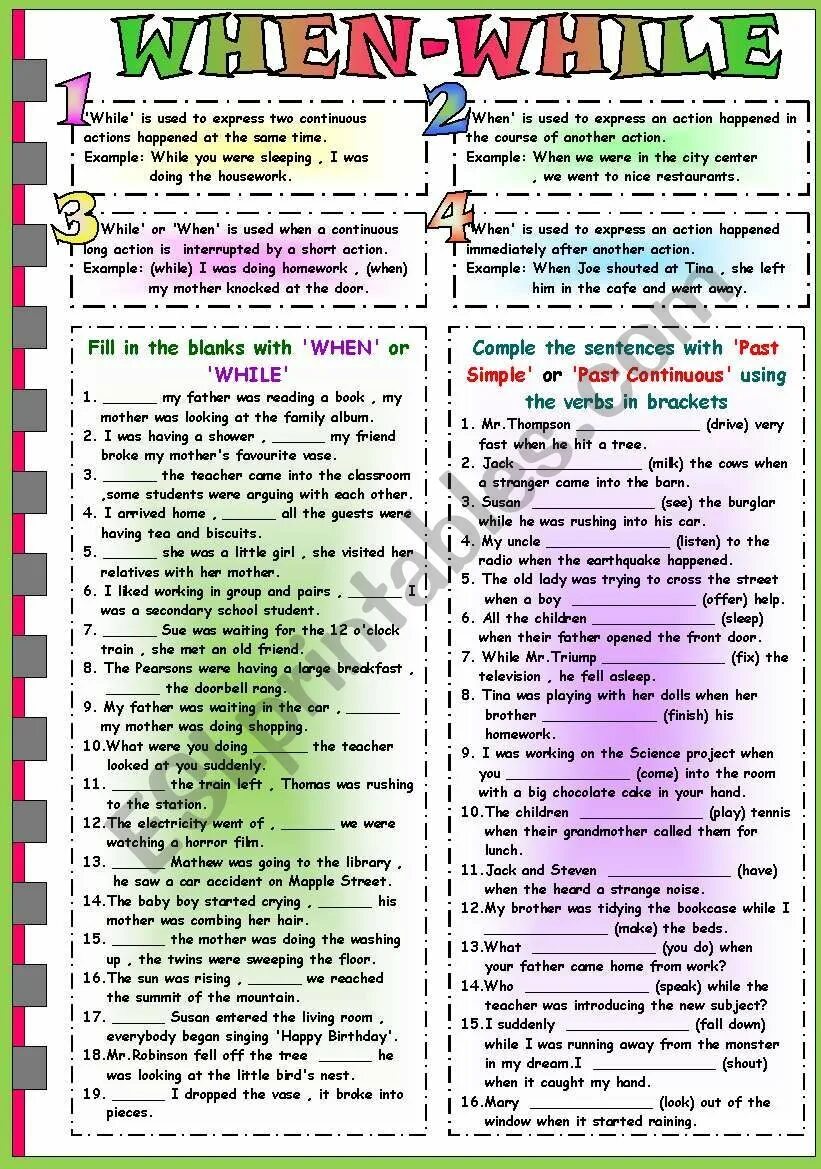 WHEN-WHILE
1
'While' is used to express two continuous
actions happened at the same time.
Example: While you were sleeping , I was
doing the housework.
2
'When' is used to express an action happened in
the course of another action.
Example: When we were in the city center
, we went to nice restaurants.
3
'While' or 'When' is used when a continuous
long action is interrupted by a short action.
Example: (while) I was doing homework , (when)
my mother knocked at the door.
4
'When' is used to express an action happened
immediately after another action.
Example: When Joe shouted at Tina , she left
him in the cafe and went away.
Fill in the blanks with 'WHEN' or
'WHILE'
1. ______ my father was reading a book , my
mother was looking at the family album.
2. I was having a shower , ______ my friend
broke my mother's favourite vase.
3. ______ the teacher came into the classroom
,some students were arguing with each other.
4. I arrived home , ______ all the guests were
having tea and biscuits.
5. ______ she was a little girl , she visited her
relatives with her mother.
6. I liked working in group and pairs , ______ I
was a secondary school student.
7. ______ Sue was waiting for the 12 o'clock
train , she met an old friend.
8. The Pearsons were having a large breakfast ,
______ the doorbell rang.
9. My father was waiting in the car , ______
my mother was doing shopping.
10.What were you doing ______ the teacher
looked at you suddenly.
11. ______ the train left , Thomas was rushing
to the station.
12.The electricity went of , ______ we were
watching a horror film.
13. ______ Mathew was going to the library ,
he saw a car accident on Mapple Street.
14.The baby boy started crying , ______ his
mother was combing her hair.
15. ______ the mother was doing the washing
up , the twins were sweeping the floor.
16.The sun was rising , ______ we reached
the summit of the mountain.
17. ______ Susan entered the living room ,
everybody began singing 'Happy Birthday'.
18.Mr.Robinson fell off the tree ______ he
was looking at the little bird's nest.
19. ______ I dropped the vase , it broke into
pieces.
Comple the sentences with 'Past
Simple' or 'Past Continuous' using
the verbs in brackets
1. Mr.Thompson ______________ (drive) very
fast when he hit a tree.
2. Jack ______________ (milk) the cows when
a stranger came into the barn.
3. Susan ______________ (see) the burglar
while he was rushing into his car.
4. My uncle ______________ (listen) to the
radio when the earthquake happened.
5. The old lady was trying to cross the street
when a boy ______________ (offer) help.
6. All the children ______________ (sleep)
when their father opened the front door.
7. While Mr.Triump ______________ (fix) the
television , he fell asleep.
8. Tina was playing with her dolls when her
brother _____________ (finish) his
homework.
9. I was working on the Science project when
you ______________ (come) into the room
with a big chocolate cake in your hand.
10.The children ______________ (play) tennis
when their grandmother called them for
lunch.
11.Jack and Steven ______________ (have)
when the heard a strange noise.
12.My brother was tidying the bookcase while I
______________ (make) the beds.
13.What ______________ (you do) when
your father came home from work?
14.Who ______________ (speak) while the
teacher was introducing the new subject?
15.I suddenly ______________ (fall down)
while I was running away from the monster
in my dream.I ______________ (shout)
when it caught my hand.
16.Mary ______________ (look) out of the
window when it started raining.
ESLprintables.com